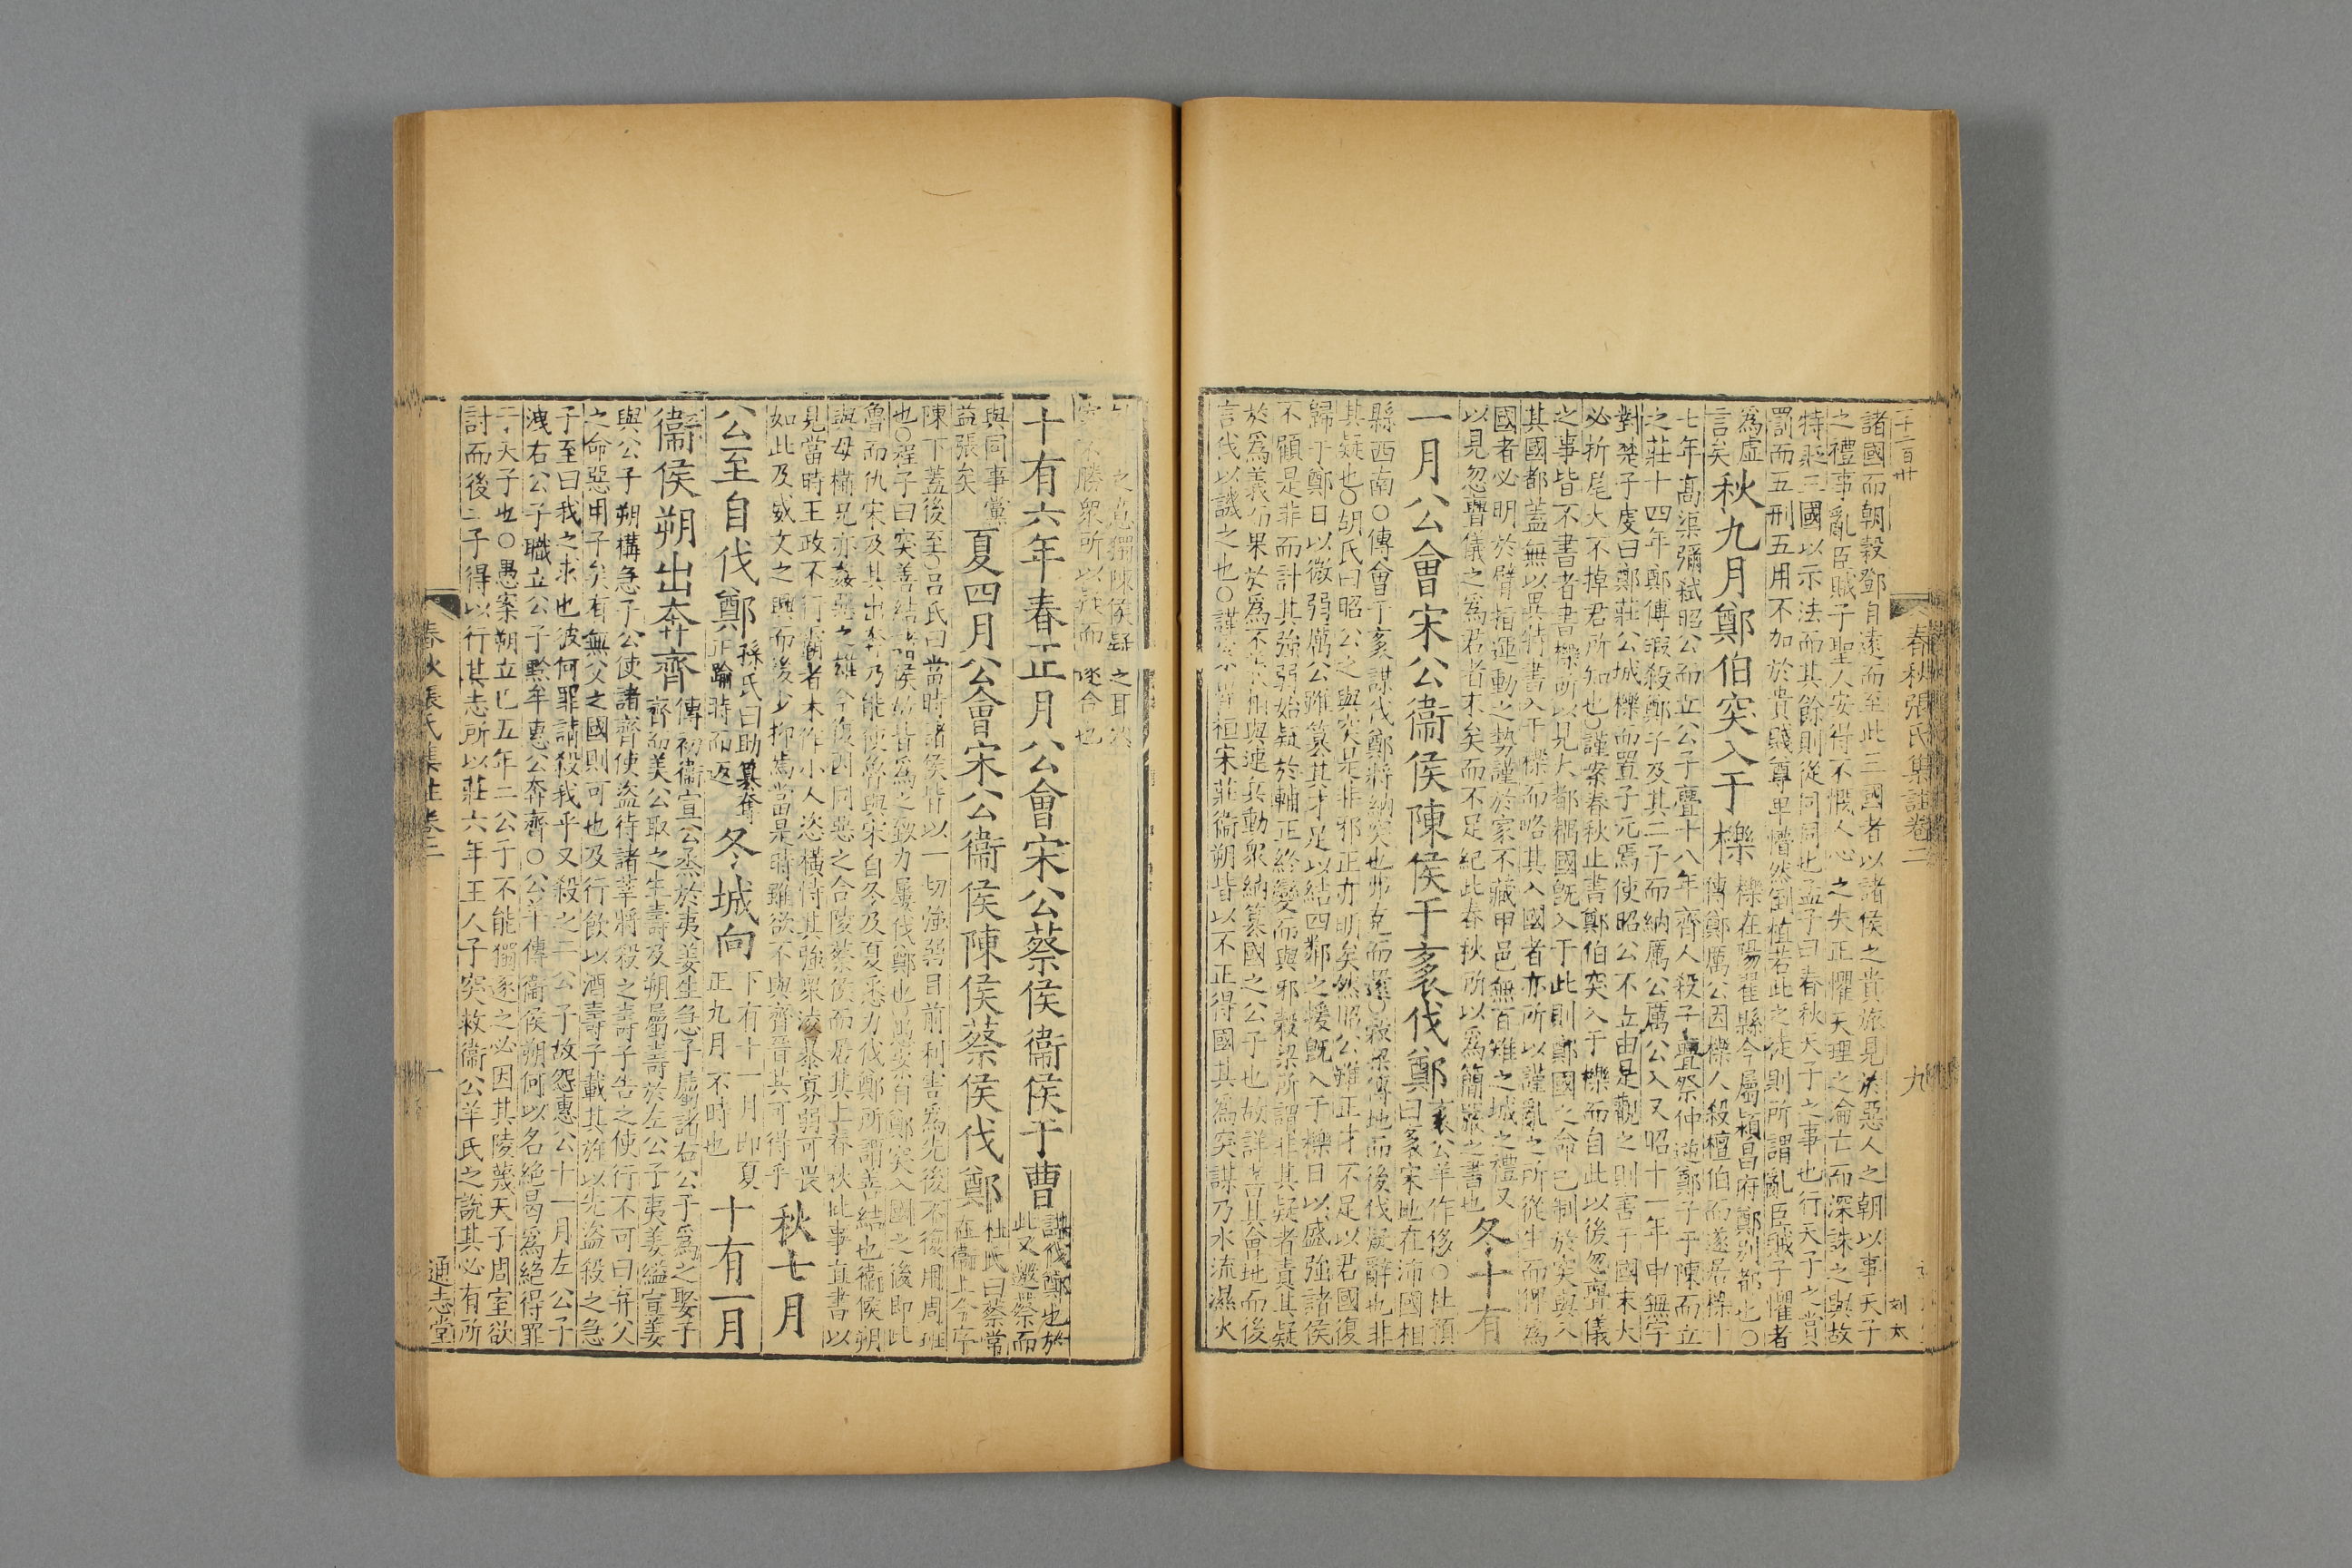 諸國而朝穀鄧自遠而至此三國者以諸侯之貴旅見於惡人之朝以事天子
之禮事亂臣賊子聖人安得不懼人心之失正懼天理之淪亡而深誅之與故
特貶三國以示法而其餘則從同同也孟子曰春秋天子之事也行天子之賞
罰而五刑五用不加於貴賤尊卑懵然倒植若此之徒則所謂亂臣賊子懼者
為虛
言矣
秋九月鄭伯突入于櫟
櫟在陽翟縣今屬潁昌府鄭別都也○
傳鄭厲公因櫟人殺檀伯而遂居櫟十
七年高渠彌弒昭公而立公子亹十八年齊人殺子亹祭仲逆鄭子于陳而立
之莊十四年鄭傅瑕殺鄭子及其二子而納厲公厲公入又昭十一年申無宇
對楚子虔曰鄭莊公城櫟而置子元焉使昭公不立由是觀之則害于國末大
必折尾大不掉君所知也○謹案春秋止書鄭伯突入于櫟而自此以後忽亹儀
之事皆不書者書櫟所以見大都耦國既入于此則鄭國之命已制於突與入
其國都蓋無以異特書入于櫟而略其入國者亦所以謹亂之所從生而俾為
國者必明於臂指運動之勢謹於家不藏甲邑無百雉之城之禮又
以見忽亹儀之為君者末矣而不足紀此春秋所以為簡嚴之書也
冬十有
一月公會宋公衞侯陳侯于袲伐鄭
袲公羊作侈○杜預
曰袲宋地在沛國相
縣西南○傳會于袲謀伐鄭將納突也弗克而還○穀梁傳地而後伐疑辭也非
其疑也○胡氏曰昭公之與突是非邪正亦明矣然昭公雖正才不足以君國復
歸于鄭日以微弱厲公雖篡其才足以結四鄰之援既入于櫟日以盛強諸侯
不顧是非而計其強弱始疑於輔正終變而與邪穀梁所謂非其疑者責其疑
於為義而果於為不義相與連兵動眾納篡國之公子也故詳其會地而後
言伐以譏之也○謹案魯桓宋莊衞朔皆以不正得國其為突謀乃水流濕火
春秋張氏集註卷二
九
十有六年春正月公會宋公蔡侯衞侯于曹
謀伐鄭也於
此又邀蔡而
與同事黨
益張矣
夏四月公會宋公衞侯陳侯蔡侯伐鄭
杜氏曰蔡常
在衞上今序
陳下蓋後至○呂氏曰當時諸侯皆以一切強弱目前利害為先後不復用周班
也○程子曰突善結諸侯故皆為之致力屢伐鄭也○愚案自鄭突入國之後即比
魯而仇宋及其出奔乃能使魯與宋自冬及夏悉力伐鄭所謂善結也衞侯朔
與母構兄亦姦惡之雄今復因同惡之合陵蔡侯而居其上春秋此事直書以
見當時王政不行霸者未作小人恣橫恃其強眾淩暴寡弱可畏
如此及威文之興而後少抑焉當是時雖欲不與齊晉其可得乎
秋七月
公至自伐鄭
孫氏曰助篡奪
正踰時而返
冬城向
下有十一月即夏
正九月不時也
十有一月
衞侯朔出奔齊
傳初衞宣公烝於夷姜生急子屬諸右公子為之娶于
齊而美公取之生壽及朔屬壽於左公子夷姜縊宣姜
與公子朔構急子公使諸齊使盜待諸莘將殺之壽子告之使行不可曰弃父
之命惡用子矣有無父之國則可也及行飲以酒壽子載其旌以先盜殺之急
子至曰我之求也彼何罪請殺我乎又殺之二公子故怨惠公十一月左公子
洩右公子職立公子黔牟惠公奔齊○公羊傳衞侯朔何以名絕曷為絕得罪
于天子也○愚案朔立已五年二公子不能獨逐之必因其陵蔑天子周室欲
討而後二子得以行其志所以莊六年王人子突救衞公羊氏之說其必有所
春秋張氏集註卷二
通志堂